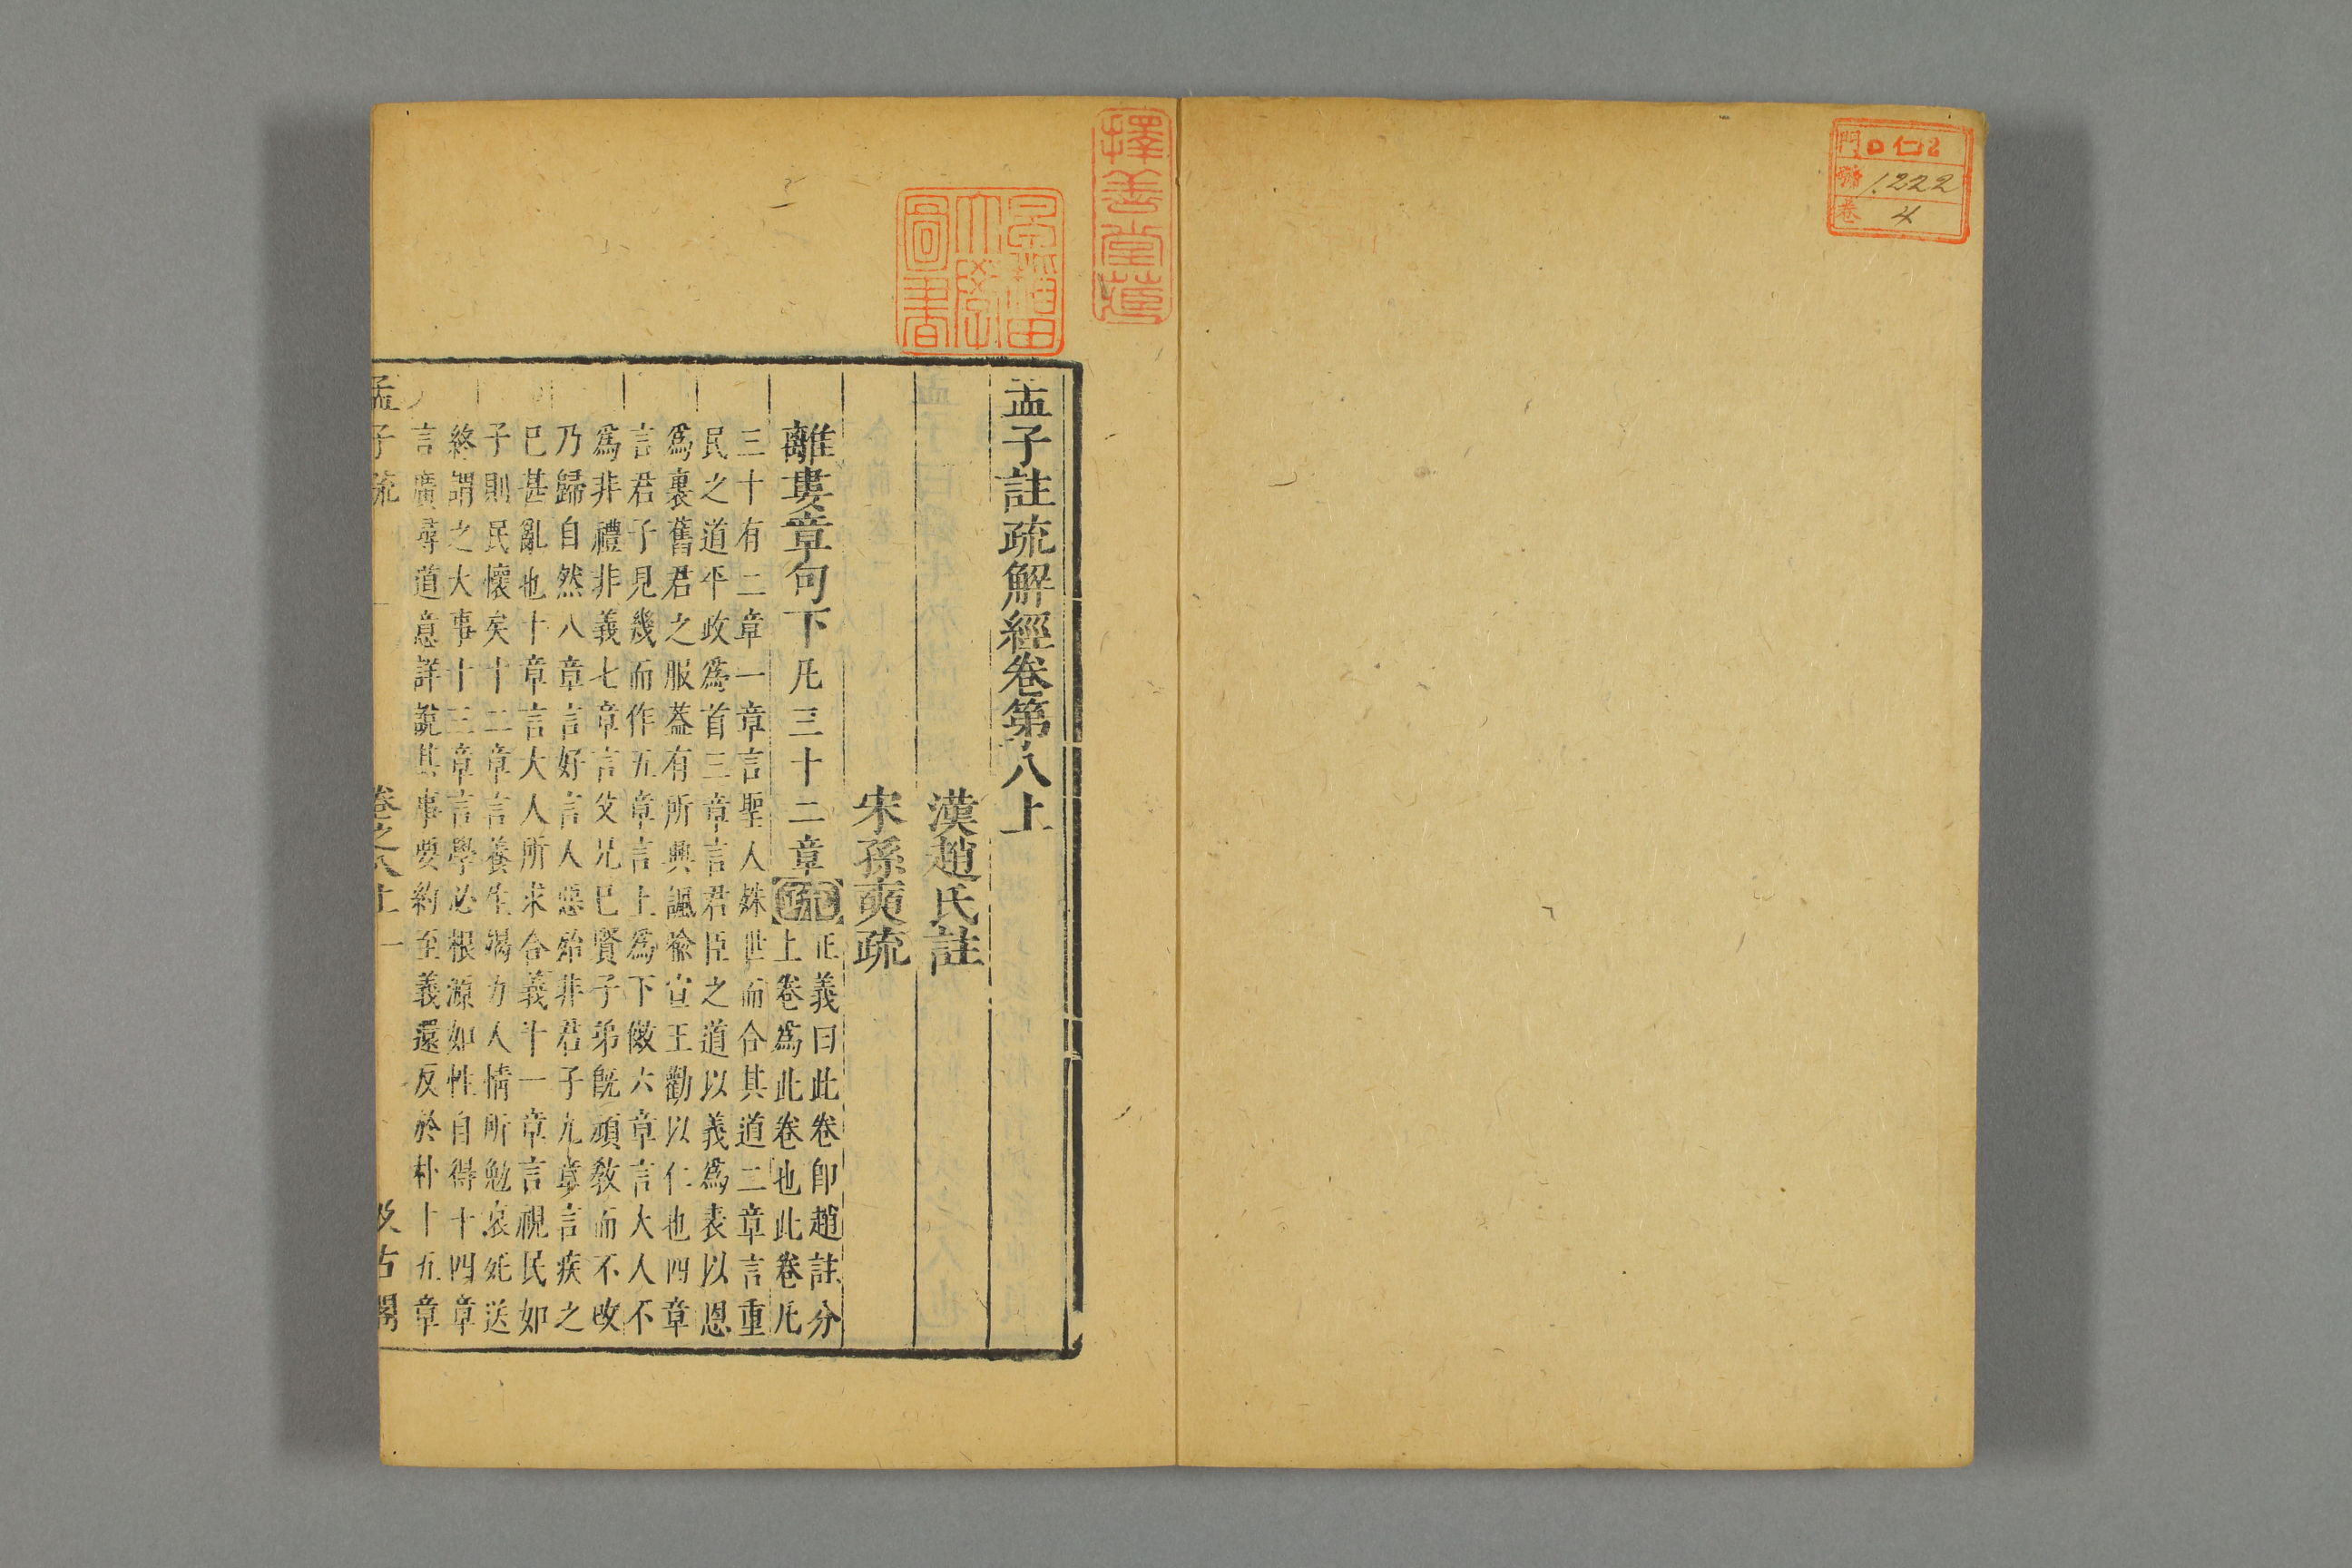 門 ロ仁2
號 1222
卷 4
擇善堂藏
早稲田
大學
圖書
孟子註疏解經卷第八上
漢趙氏註
宋孫奭疏
離婁章句下凡三十二章疏正義曰此卷卽趙註分
上卷爲此卷也此卷凡
三十有二章一章言聖人殊世而合其道二章言重
民之道平政爲首三章言君臣之道以義爲表以恩
爲裏舊君之服葢有所興諷諭宣王勸以仁也四章
言君子見幾而作五章言上爲下傚六章言大人不
爲非禮非義七章言父兄已賢子弟旣頑敎而不改
乃歸自然八章言好言人惡殆非君子九章言疾之
已甚亂也十章言大人所求合義十一章言視民如
子則民懷矣十二章言養生竭力人情所勉哀死送
終謂之大事十三章言學必根源如性自得十四章
言廣尋道意詳說其事要約至義還反於朴十五章
孟子疏 卷之八上 一 汲古閣